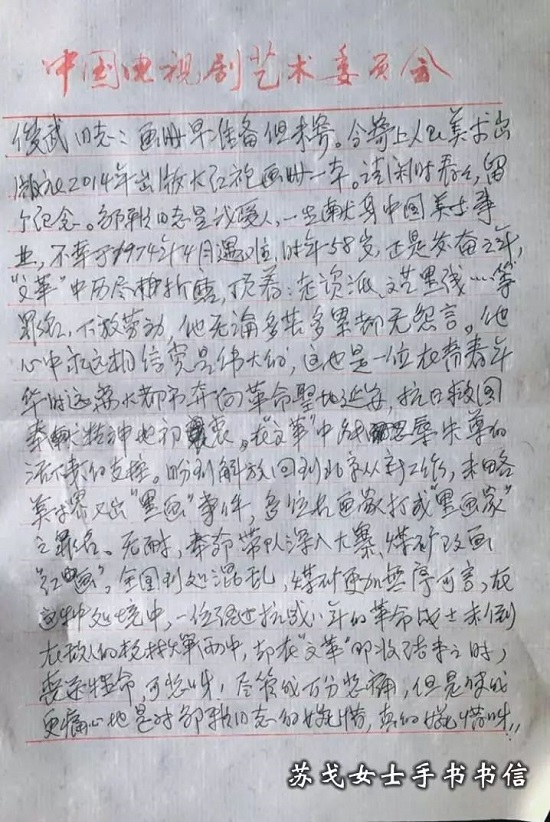 中国电视剧艺术委员会
俊武同志：画册早准备但未寄。今寄上人民美术出
版社2014年出版大红袍画册一本。请闲时看看，留
个纪念。邹雅同志是我爱人，一生献身中国美术事
业，不幸于1974年4月遇难，时年58岁，正是发奋之年，
"文革"中历尽折磨，顶着：走资派、文艺黑线……等
罪名，下放劳动，他无论多苦多累都无怨言。他
心中永远相信党是伟大的，这也是一位在青春年
华时远离大都市奔向革命圣地延安，抗日救国
精神也初衷。在"文革"中忍辱
支撑。盼到解放回到北京从新工作，未略
美术界又出"黑画"事件，多位老画家打成"黑画家"
之罪名。无耐，奉命带队深入大寨、煤矿改画
"红画"，全国到处混乱，煤矿更加无序可言，在
这种处境中，一位经过抗战八年的革命战士未倒
在敌人的枪林弹雨中，却在"文革"即将结束之时，
丧命，可悲呀，尽管我万分悲痛，但是使我
更痛心地是对邹雅同志的惋惜，真的惋惜呀！！
苏戈女士手书书信